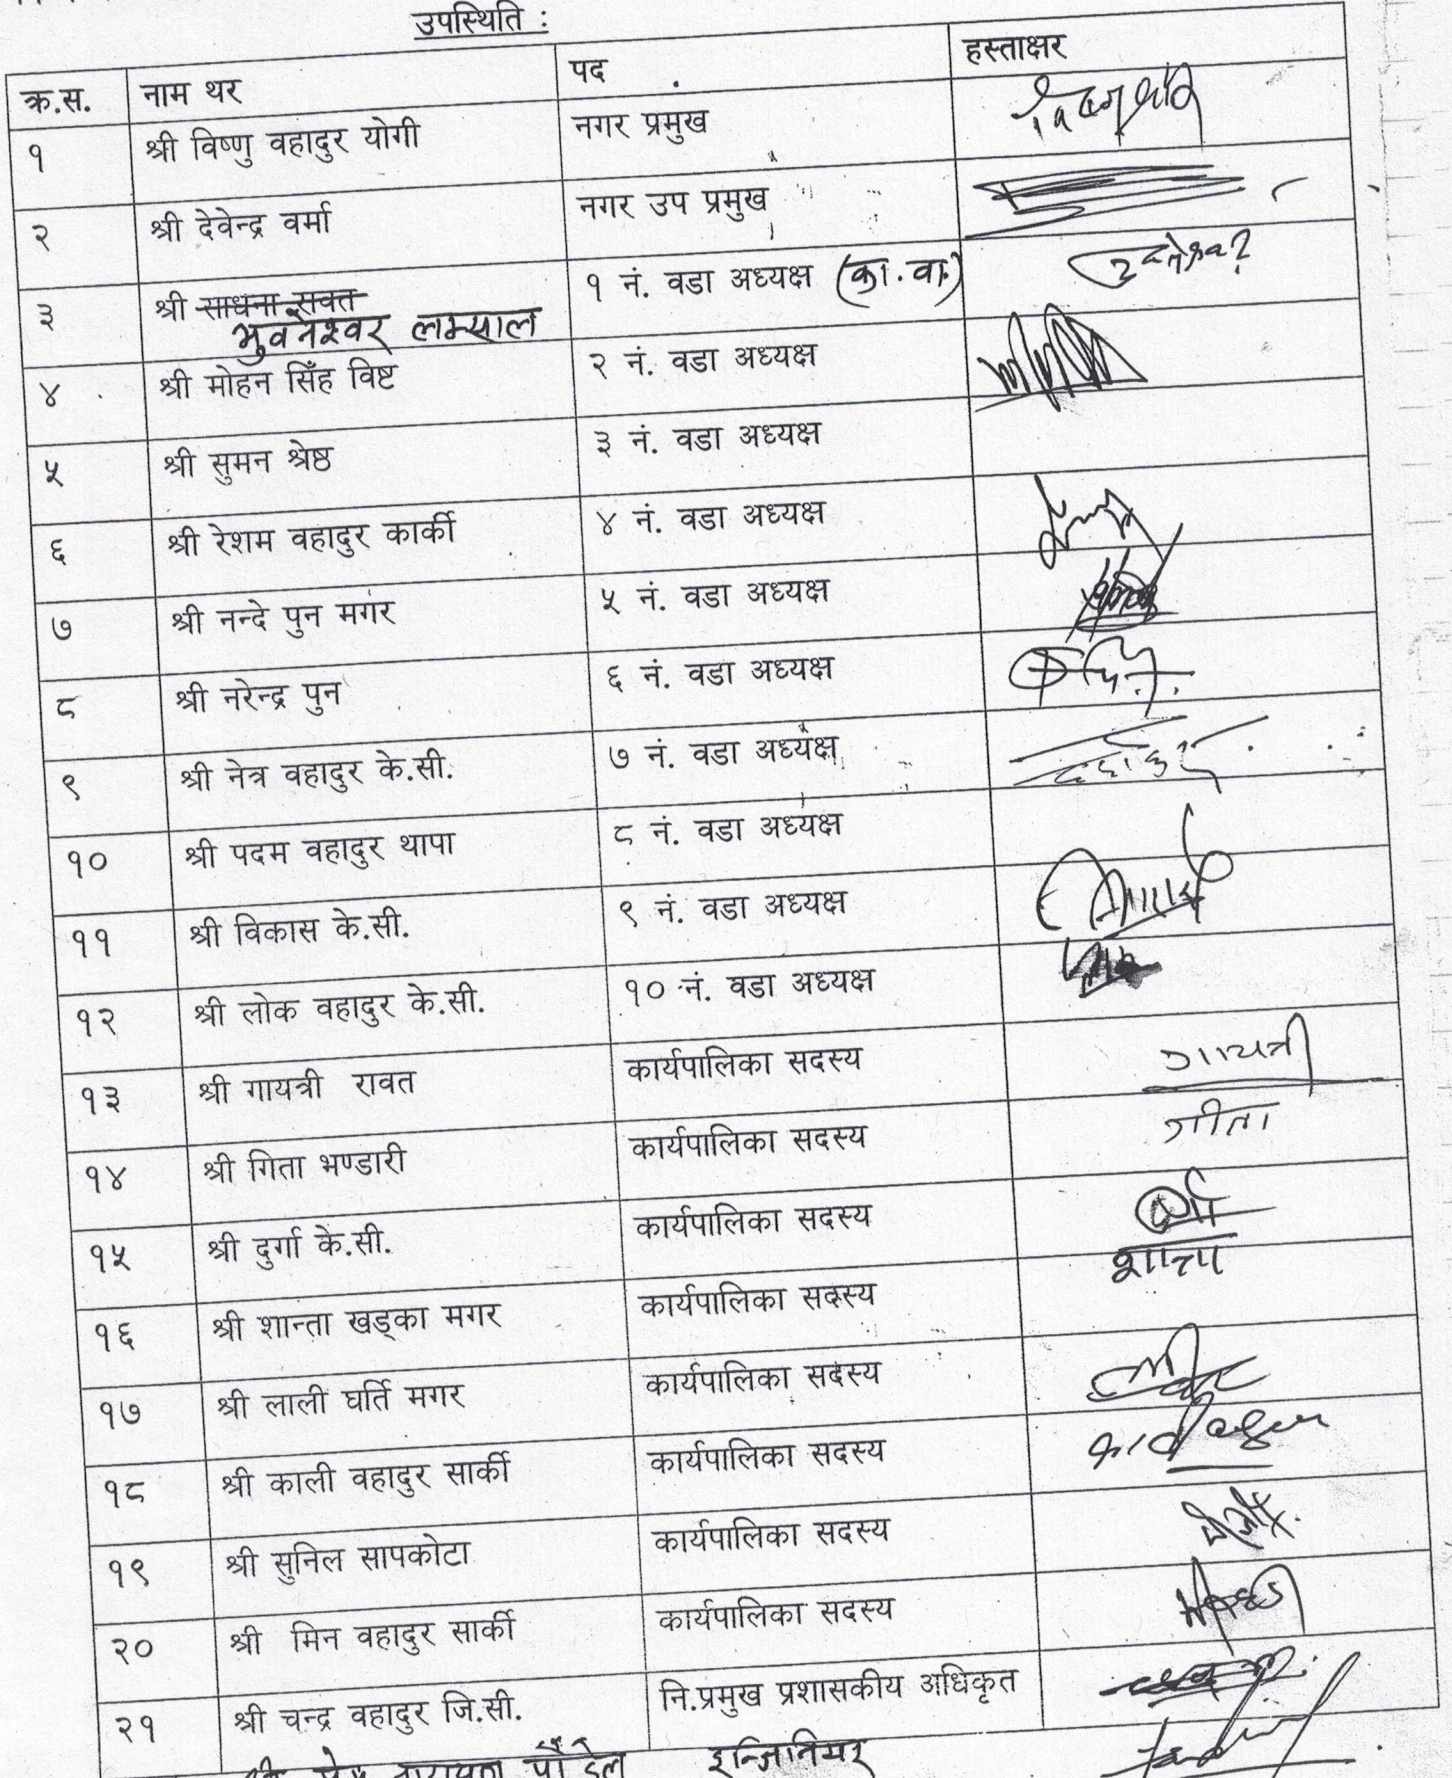 उपस्थिति :
क्र.स. नाम थर पद हस्ताक्षर
१ श्री विष्णु वहादुर योगी नगर प्रमुख
२ श्री देवेन्द्र वर्मा नगर उप प्रमुख
३ श्री साधना रावत १ नं. वडा अध्यक्ष (का.वा.)
भुवनेश्वर लम्साल
४ श्री मोहन सिँह विष्ट २ नं. वडा अध्यक्ष
५ श्री सुमन श्रेष्ठ ३ नं. वडा अध्यक्ष
६ श्री रेशम वहादुर कार्की ४ नं. वडा अध्यक्ष
७ श्री नन्दे पुन मगर ५ नं. वडा अध्यक्ष
८ श्री नरेन्द्र पुन ६ नं. वडा अध्यक्ष
९ श्री नेत्र वहादुर के.सी. ७ नं. वडा अध्यक्ष
१० श्री पदम वहादुर थापा ८ नं. वडा अध्यक्ष
११ श्री विकास के.सी. ९ नं. वडा अध्यक्ष
१२ श्री लोक वहादुर के.सी. १० नं. वडा अध्यक्ष
१३ श्री गायत्री रावत कार्यपालिका सदस्य गायत्री
१४ श्री गिता भण्डारी कार्यपालिका सदस्य गीता
१५ श्री दुर्गा के.सी. कार्यपालिका सदस्य
१६ श्री शान्ता खड्का मगर कार्यपालिका सदस्य शान्ता
१७ श्री लाली घर्ति मगर कार्यपालिका सदस्य
१८ श्री काली वहादुर सार्की कार्यपालिका सदस्य
१९ श्री सुनिल सापकोटा कार्यपालिका सदस्य
२० श्री मिन वहादुर सार्की कार्यपालिका सदस्य
२१ श्री चन्द्र वहादुर जि.सी. नि.प्रमुख प्रशासकीय अधिकृत
पौडेल इन्जिनियर